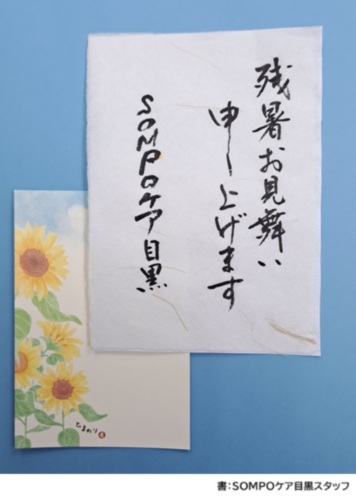 残暑お見舞い
申し上げます
SOMPOケア目黒
ひまわり
書：SOMPOケア目黒スタッフ